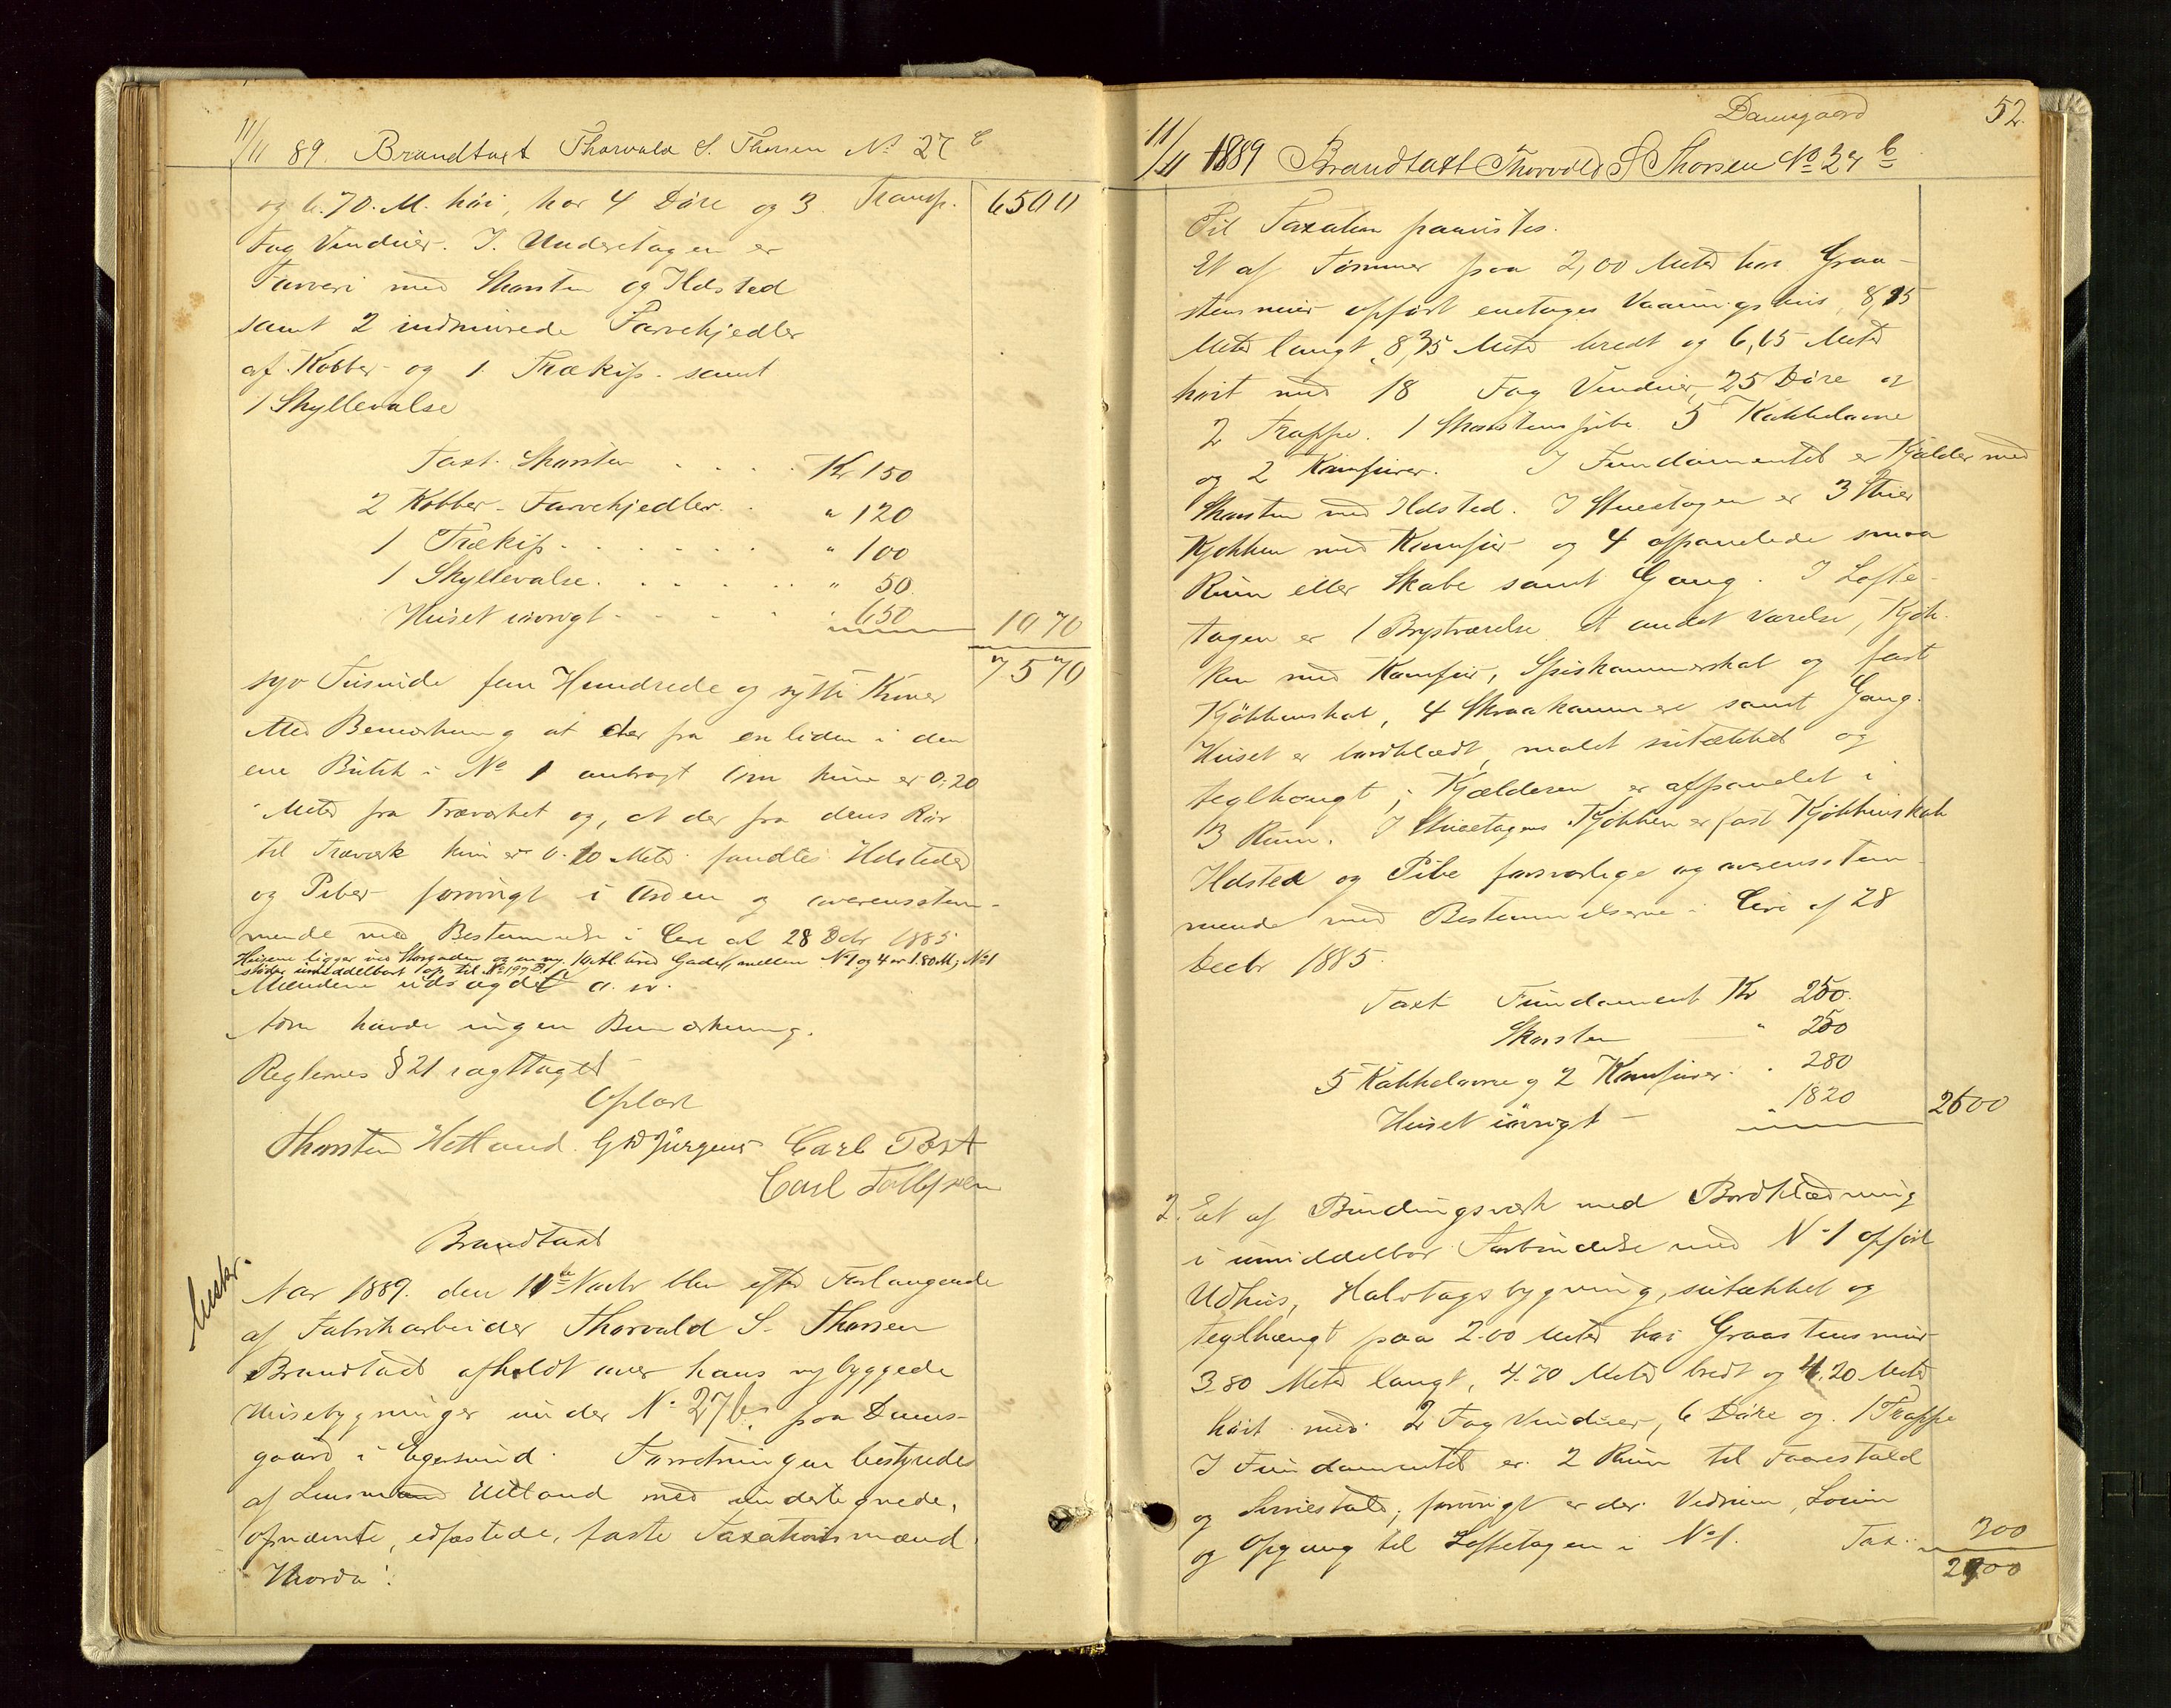 11/11 89. Brandtaxt Thorvald S. Thorsen No 27 b
og 6.70. M. høi, har 4 Døre og 3 Transp. 6500
Fag Vinduer. I Underetagen er
Farveri med Skorsten og Ildsted
samt 2 indmurede Farvekjedler
af Kobber og 1 Trækip samt
1 Skyllevalse
Taxt. Skorsten . . . . Kr 150
2 Kobber-Farvekjedler . . " 120
1 Trækip . . . . . . " 100
1 Skyllevalse . . . . . " 50
Huset iøvrigt - - - - " 650 1070
7570
syv Tusinde fem Hundrede og sytti Kroner
Med Bemærkning at der fra en liden i den
ene Butik i No 1 anbragt Ovn kun er 0,20
Meter fra Træværket og, at der fra dens Rør
til Træværk kun er 0.10 Meter fandtes Ildsteder
og Piber forøvrigt i Orden og overensstem-
mende med Bestemmelse i Circ af 28 Decbr 1885
Husene ligger ved Storgaden og en ny 10 Al. bred Gade, mellem No 1 og 4 er 1.80 M; No 1
støder umiddelbart op til No 197
Mændene udsagdet a. v.
havde ingen Bemærkning.
Reglernes § 21 iagttaget
Oplæst
Thorsten Hetland. G W Jürgens Carl Post
Carl Tollefsen
Brandtaxt
Aar 1889. den 11te Novbr blev efter Forlangende
af Fabrikarbeider Thorvald S. Thorsen
Brandtaxt afholdt over hans nybyggede
Husebygninger under No 27b paa Dams-
gaard i Egersund. Forretningen bestyredes
af Lensmand Hetland med undertegnede,
opnævnte, edfæstede, faste Taxationsmænd.
Hvorda:
Damsgaard 52.
11/11 1889 Brandtaxt Thorvald S Thorsen No 27 b
Til Taxation paavistes.
Et af Tømmer paa 2,00 Meter høi Graa-
stensmur opført enetages Vaaningshus, 8,15
Meter langt, 8,35 Meter bredt og 6,65 Meter
høit med 18 Fag Vinduer, 25 Døre og
2 Trappe. 1 Skorstenspibe 5 Kakkelovne
og 2 Komfurer. I Fundamentet er Kjælder med
Skorsten med Ildsted. I Stueetagen er 3 Stuer
Kjøkken med Komfur og 4 afpanelede smaa
Rum eller Skabe samt Gang. I Lofte-
tagen er 1 Brystværelse et andet Værelse, Kjøk-
ken med Komfur, Spiskammerskab og fast
Kjøkkenskab, 4 Skraakammere samt Gang.
Huset er bordklædt, malet sutækket og
teglhængt; Kjælderen er afpanelet i
3 Rum. I Stueetagens Kjøkken er fast Kjøkkenskab
Ildsted og Pibe forsvarlige og overensstem-
mende med Bestemmelserne i Circ af 28
Decbr 1885.
Taxt Fundament Kr 250.
Skorsten " 250
5 Kakkelovne og 2 Komfurer " 280
Huset iøvrigt - " 1820 2600
2. Et af Bindingsværk med Bordklædning
i umiddelbar Forbindelse med No 1 opført
Udhus, Halvtagsbygning, sutækket og
teglhængt paa 2.00 Meter høi Graastensmur
3.80 Meter langt, 4.70 Meter bredt og 4,20 Meter
høit med 2 Fag Vinduer, 6 Døre og 1 Trappe
I Fundamentet er 2 Rum til Faarestald
og Svinestald; forøvrigt er der Vedrum,
og Opgang til Loftetagen i No 1. Tax. 300
2900